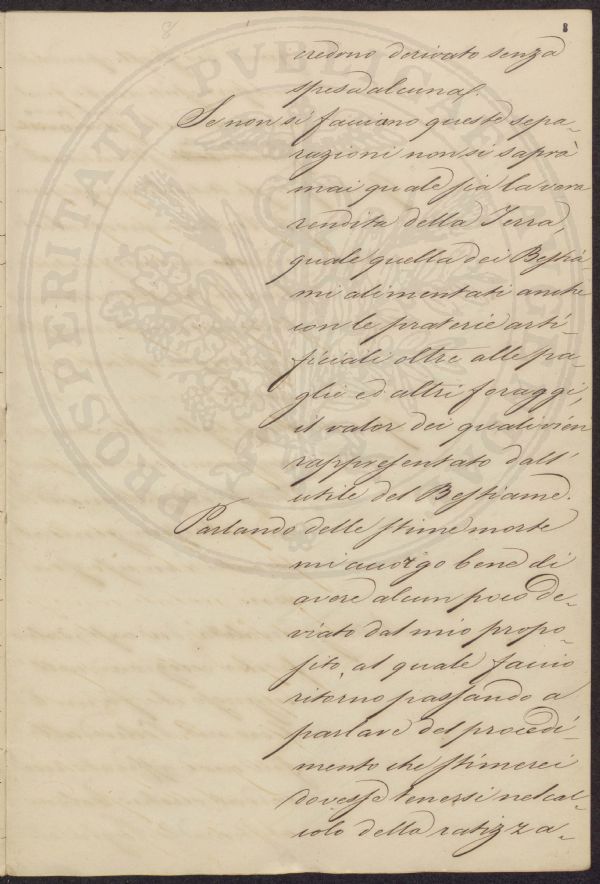 8
8
credono derivato senza
spesa alcuna.
Se non si facciano queste sepa-
razioni non si saprà
mai quale sia la vera
rendita della Terra,
quale quella dei Bestia-
mi alimentati anche
con le praterie arti-
ficiali oltre alle pa-
glie ed altri foraggi,
il valor dei quali vien
rappresentato dall'
utile del Bestiame.
Parlando delle stime morte
mi accorgo bene di
avere alcun poco de-
viato dal mio propo-
sito, al quale faccio
ritorno passando a
parlare del procedi-
mento che stimerei
dovesse tenersi nel cal-
colo della ratizza-
PROSPERITATI PVBLICAE AVGENDAE